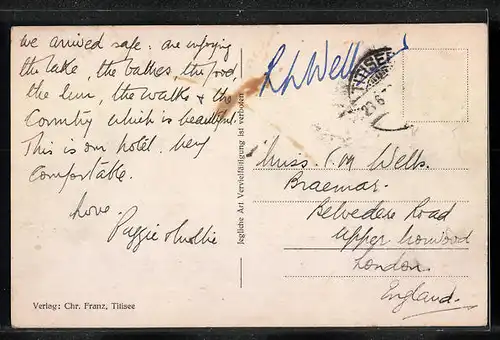 we arrived safe. are enjoying
the lake, the bathes, the food,
the sun, the walks + the
Country which is beautiful.
This is our hotel. Very
Comfortable.
Love.
Jegliche Art Vervielfältigung ist verboten
TITISEE
23.6.
Miss. C. M Wells.
Braemar.
Belvedere Road
Upper Norwood
London.
England.
Verlag: Chr. Franz, Titisee